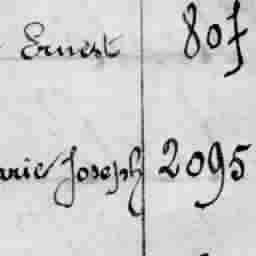 Ernest 807
arie Joseph 2095